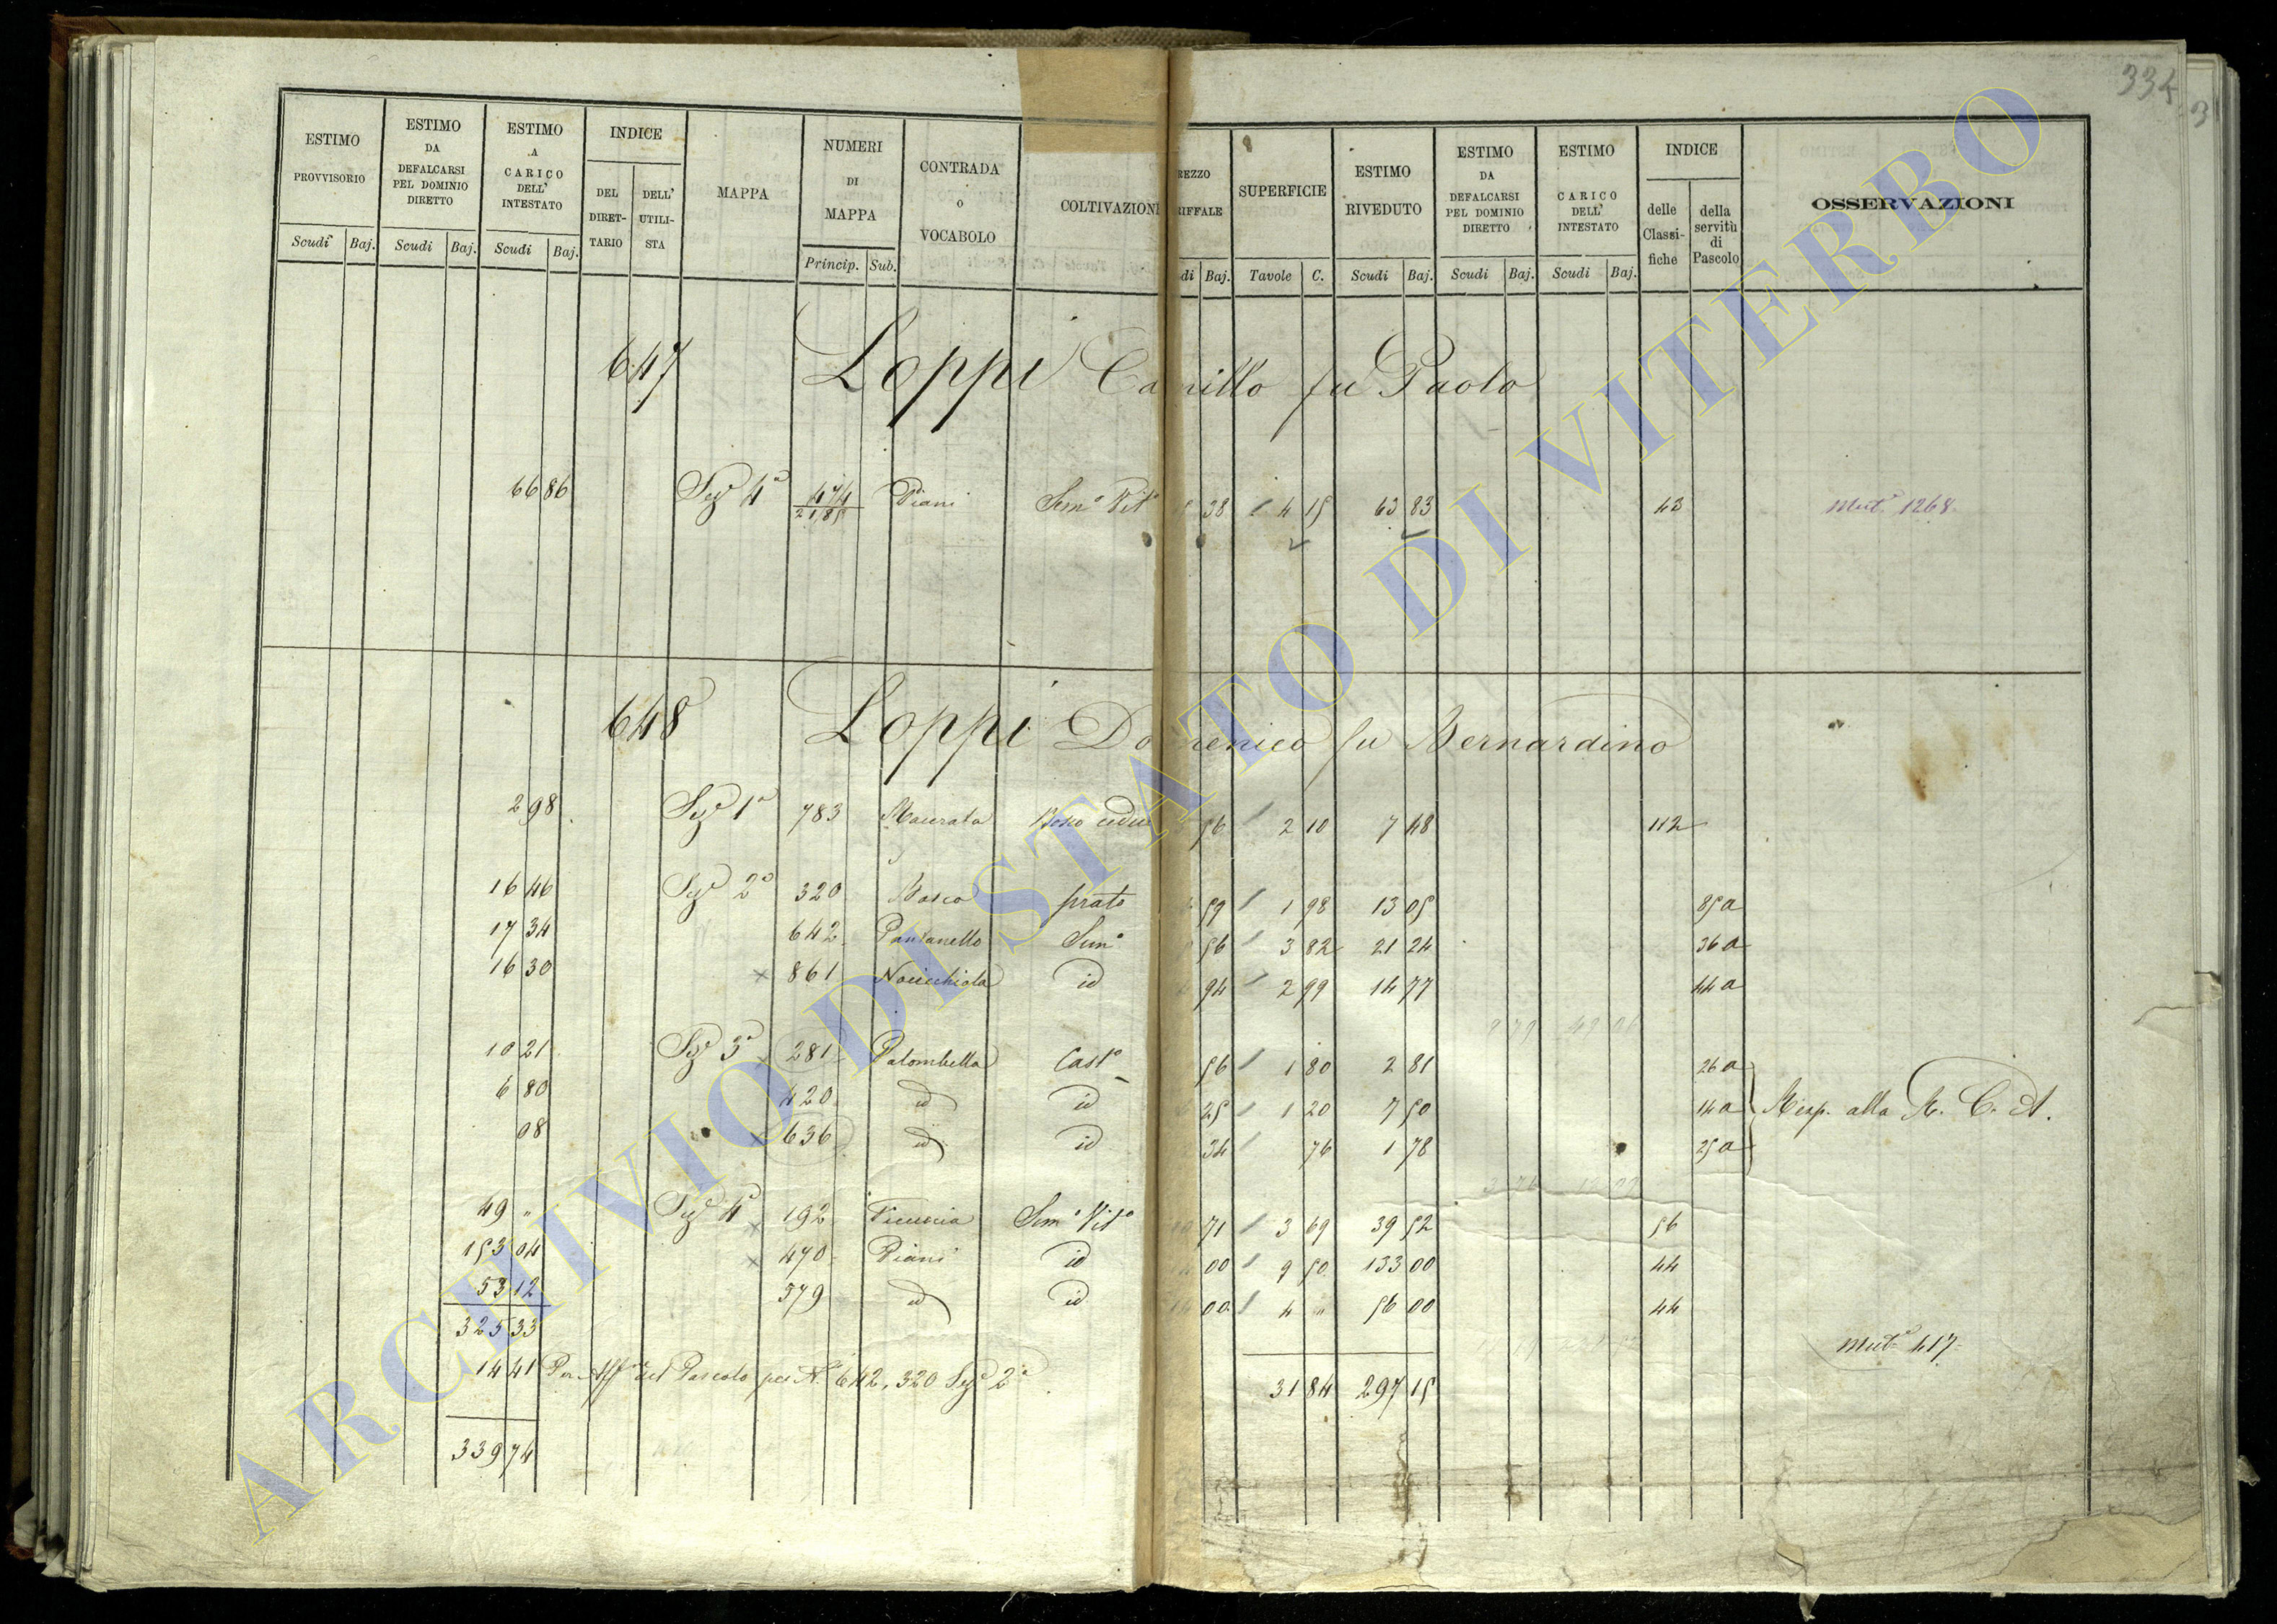 334
3
ESTIMO PROVVISORIO | ESTIMO DA DEFALCARSI PEL DOMINIO DIRETTO | ESTIMO A CARICO DELL' INTESTATO | INDICE DEL DIRET-TARIO | DELL' UTILI-STA | MAPPA | NUMERI DI MAPPA | CONTRADA o VOCABOLO | COLTIVAZION | REZZO RIFFALE | SUPERFICIE | ESTIMO RIVEDUTO | ESTIMO DA DEFALCARSI PEL DOMINIO DIRETTO | ESTIMO CARICO DELL' INTESTATO | INDICE delle Classi-fiche | della servitù di Pascolo | OSSERVAZIONI
Scudi Baj. | Scudi Baj. | Scudi Baj. | Princip. Sub. | di Baj. | Tavole C. | Scudi Baj. | Scudi Baj. | Scudi Baj.
647 Loppi Camillo fu Paolo
66 86 Sez.e 4a 474 / 2185 Piani Sem.o Vit.o 38 4 15 63 83 43 Mut.a 1268
648 Loppi Domenico fu Bernardino
2 98 Sez.e 1a 783 Macerata Bosco cedu 56 2 10 7 48 112
16 46 Sez.e 2a 320 Bosco prato 59 1 98 13 05 85a
17 34 642 Pantanello Sem.o 56 3 82 21 24 36a
16 30 861 Nocicchiola id 94 2 99 14 77 44a
10 21 Sez.e 3a 281 Palombella Cast.o 56 1 80 2 81 26a
6 80 420 id id 25 1 20 7 50 14a Risp. alla R. C. A.
08 636 id id 34 76 1 78 25a
49 " Sez.e 4a 192 Sem.o Vit.o 71 3 69 39 52 56
153 04 470 Piani id 00 9 50 133 00 44
53 12 579 id id 00 4 " 56 00 44
325 33
14 41 Per Aff.e del Pascolo pei N. 642, 320 Sez.e 2a 31 84 297 15 Mut.a 417
339 74
ARCHIVIO DI STATO DI VITERBO